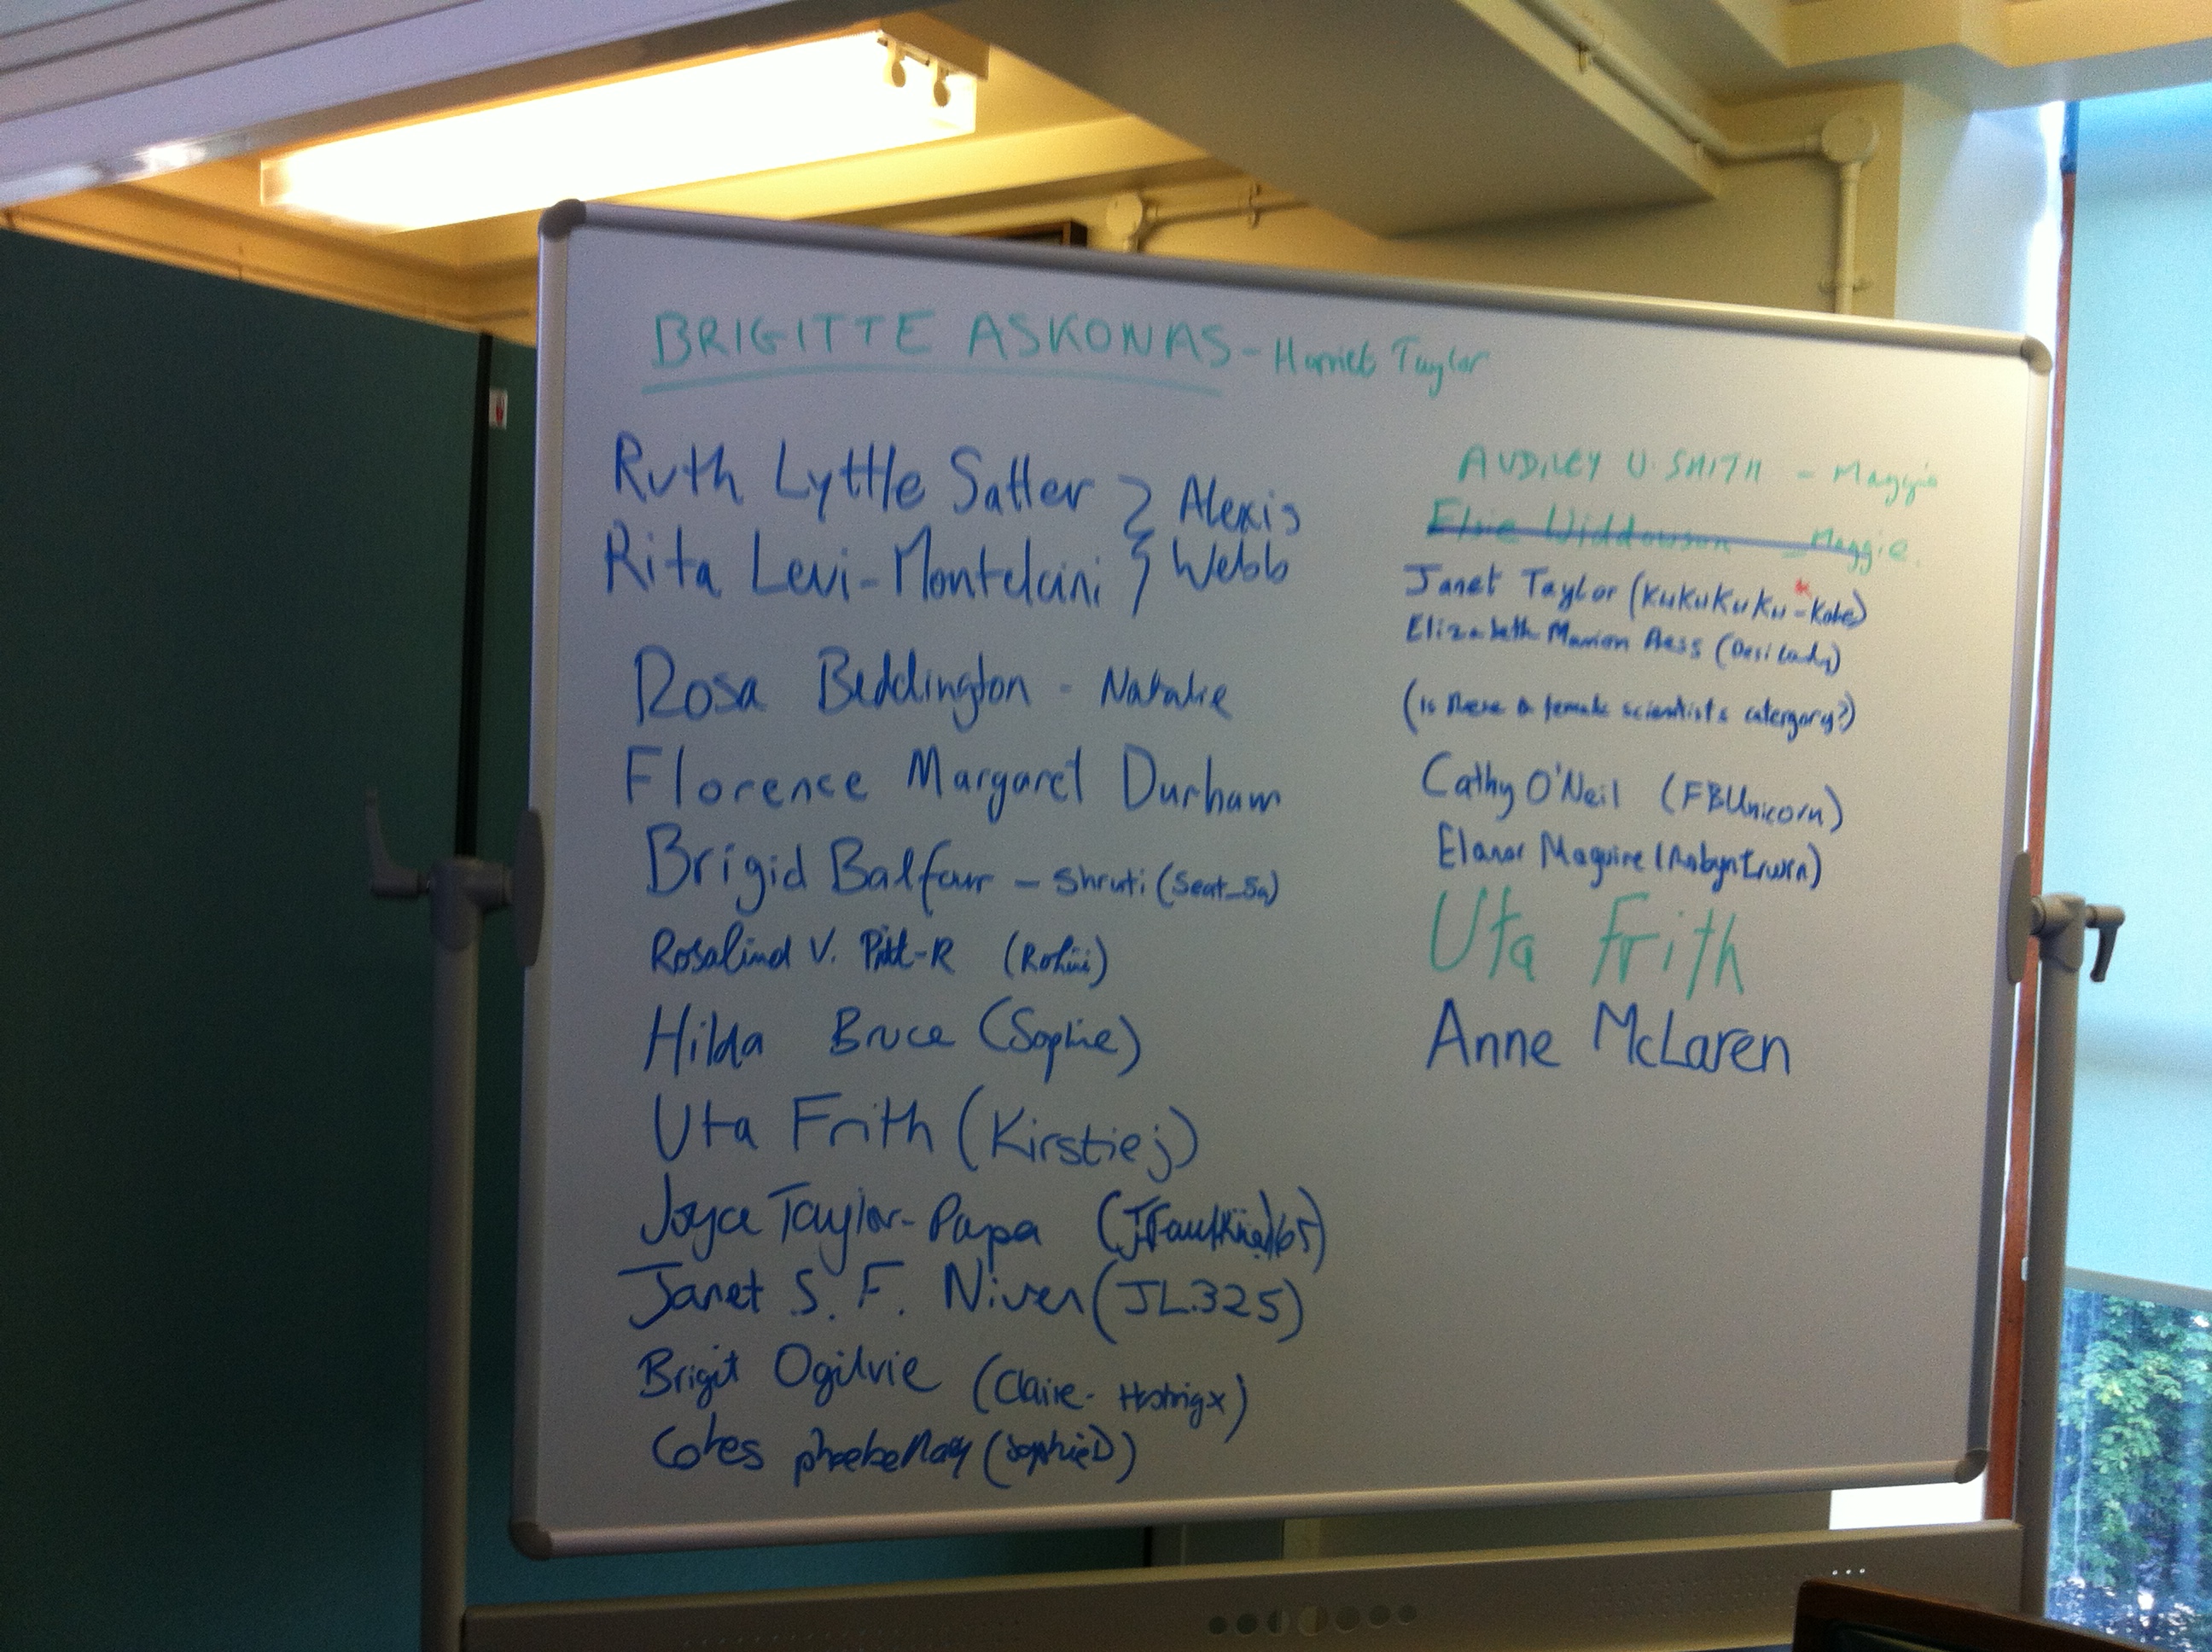 BRIGITTE ASKONAS - Harriet Taylor
Ruth Lyttle Satter } Alexis
Rita Levi-Montelcini } Webb
Rosa Beddington - Natalie
Florence Margaret Durham
Brigid Balfour - Shruti (Seat_5a)
Rosalind V. Pitt-R (Rohini)
Hilda Bruce (Sophie)
Uta Frith (Kirstiej)
Joyce Taylor-Papa
Janet S. F. Niven (JL325)
Brigit Ogilvie (Claire-
Cotes phoebe Mary (SophieD)
AUDREY U. SMITH - Maggie
Elsie Widdowson - Maggie.
Janet Taylor (KuKuKuKu*-Kobe)
Elizabeth Marion Press (Desi Lady)
(is there a female scientists catergory?)
Cathy O'Neil (FBUnicorn)
Elanor Maguire (RobynIrwin)
Uta Frith
Anne McLaren